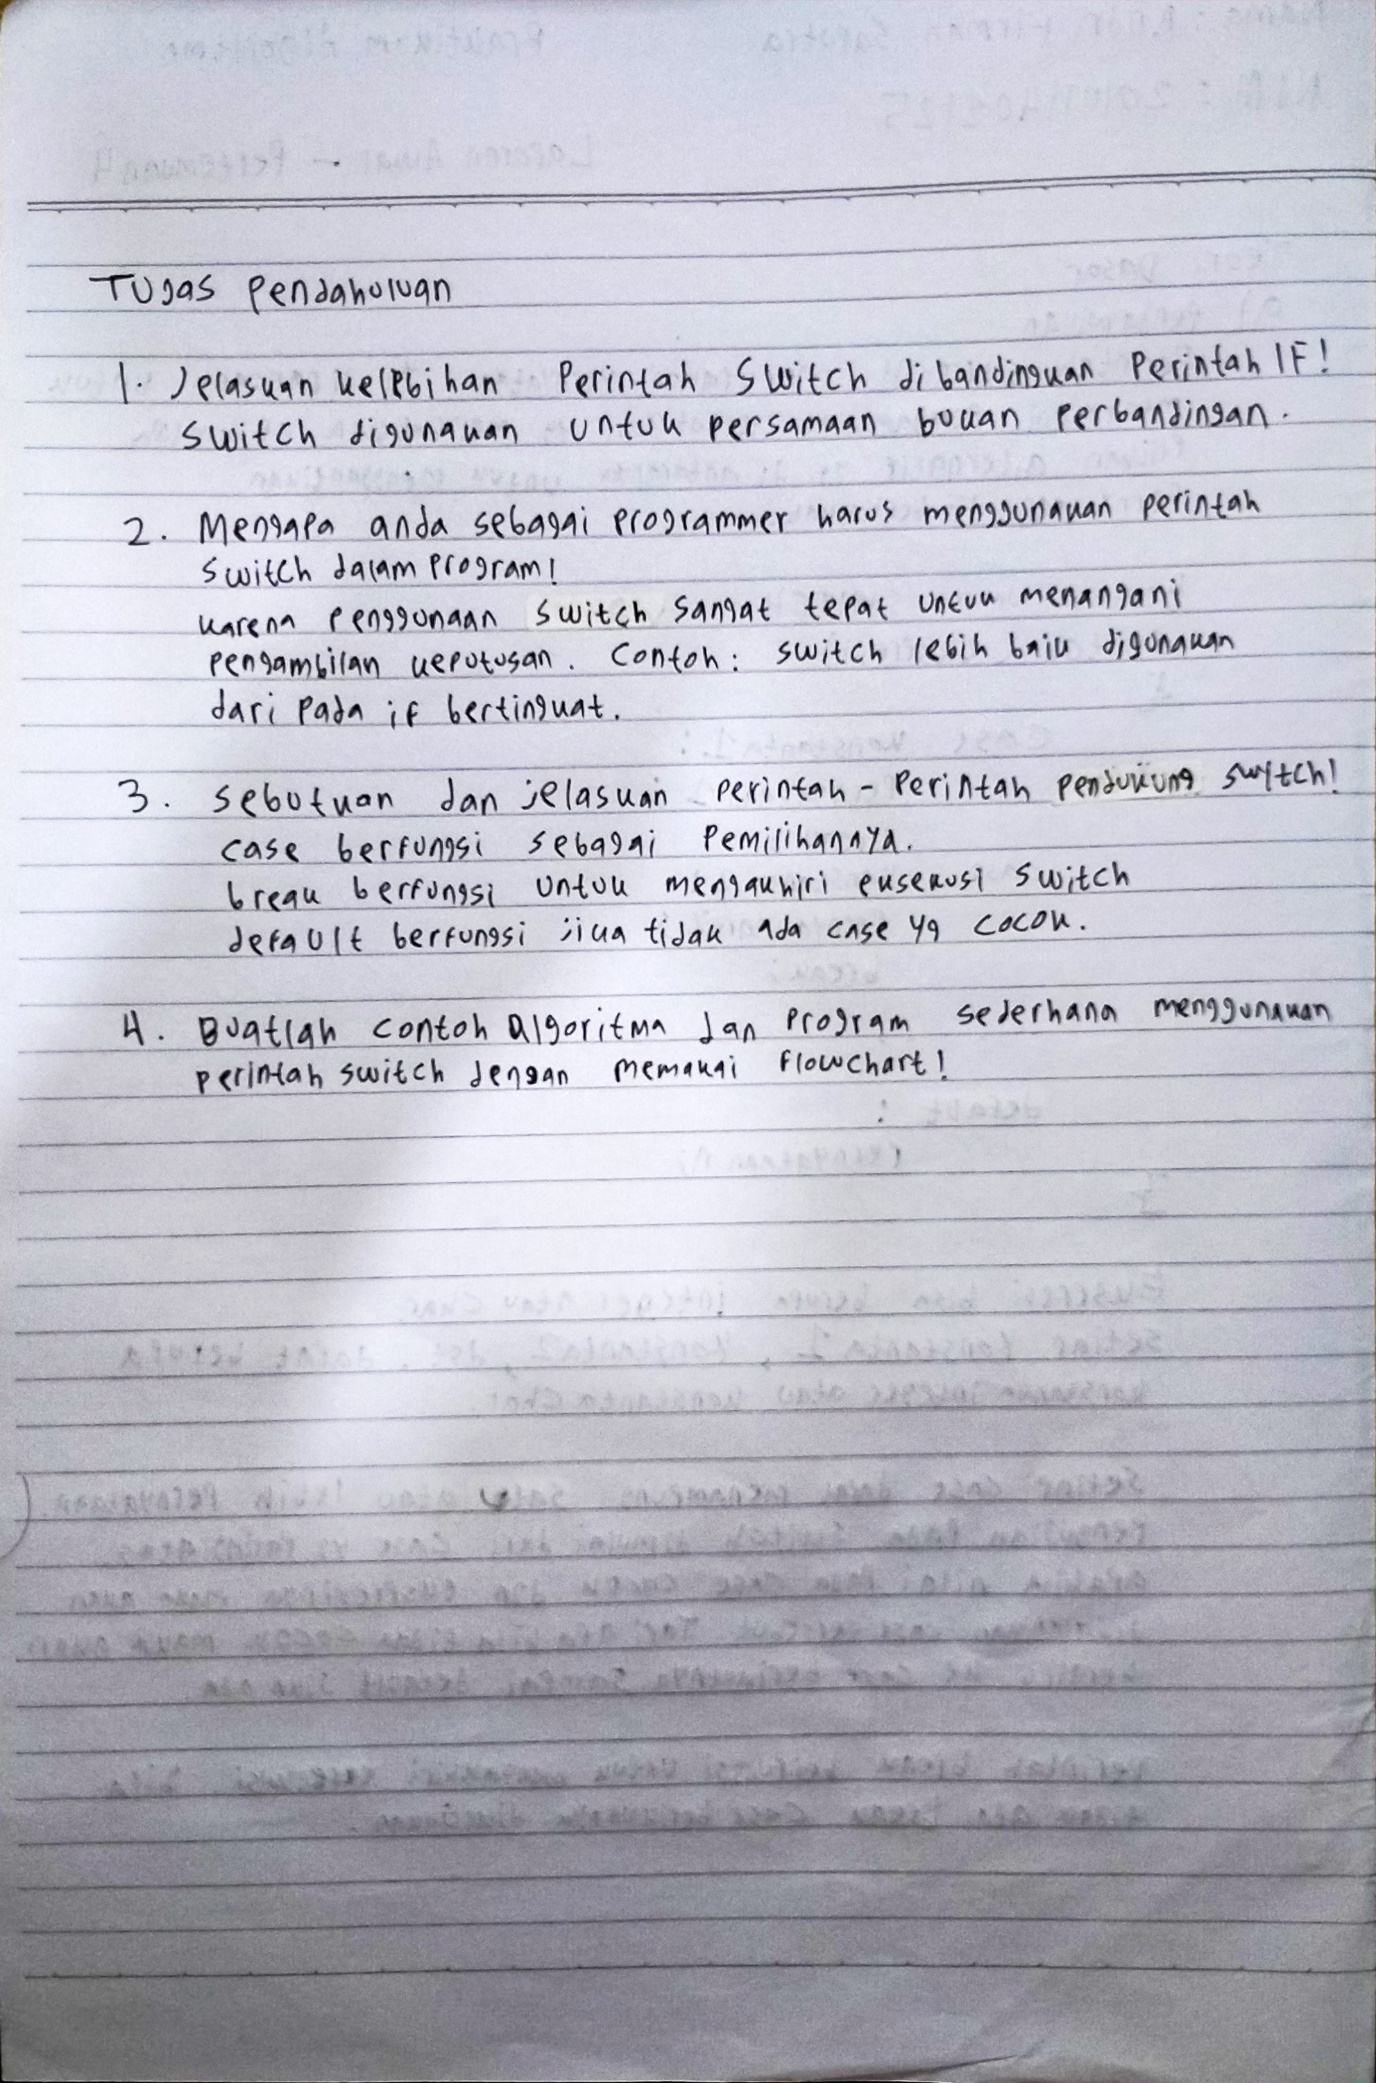 Tugas Pendahuluan
1. Jelaskan kelebihan Perintah Switch dibandingkan Perintah IF!
Switch digunakan untuk persamaan bukan Perbandingan.
2. Mengapa anda sebagai Programmer harus menggunakan perintah
Switch dalam Program!
karena Penggunaan switch sangat tepat untuk menangani
pengambilan keputusan. Contoh: switch lebih baik digunakan
dari Pada if bertingkat.
3. Sebutkan dan jelaskan perintah - Perintah pendukung switch!
case berfungsi sebagai Pemilihannya.
break berfungsi untuk mengakhiri eksekusi switch
default berfungsi jika tidak ada case yg cocok.
4. Buatlah contoh Algoritma dan Program sederhana menggunakan
perintah switch dengan memakai Flowchart!